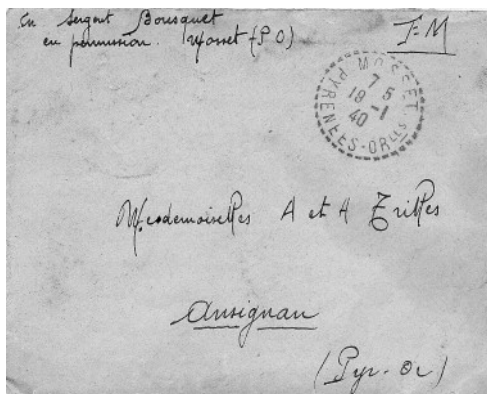 Sergent Bousquet
en permission. Mosset (P O)
F M
MOSSET
7
18 5
-1
40
PYRENEES-ORLLS
Mesdemoiselles A et A
Ansignan
(Pyr-Or)